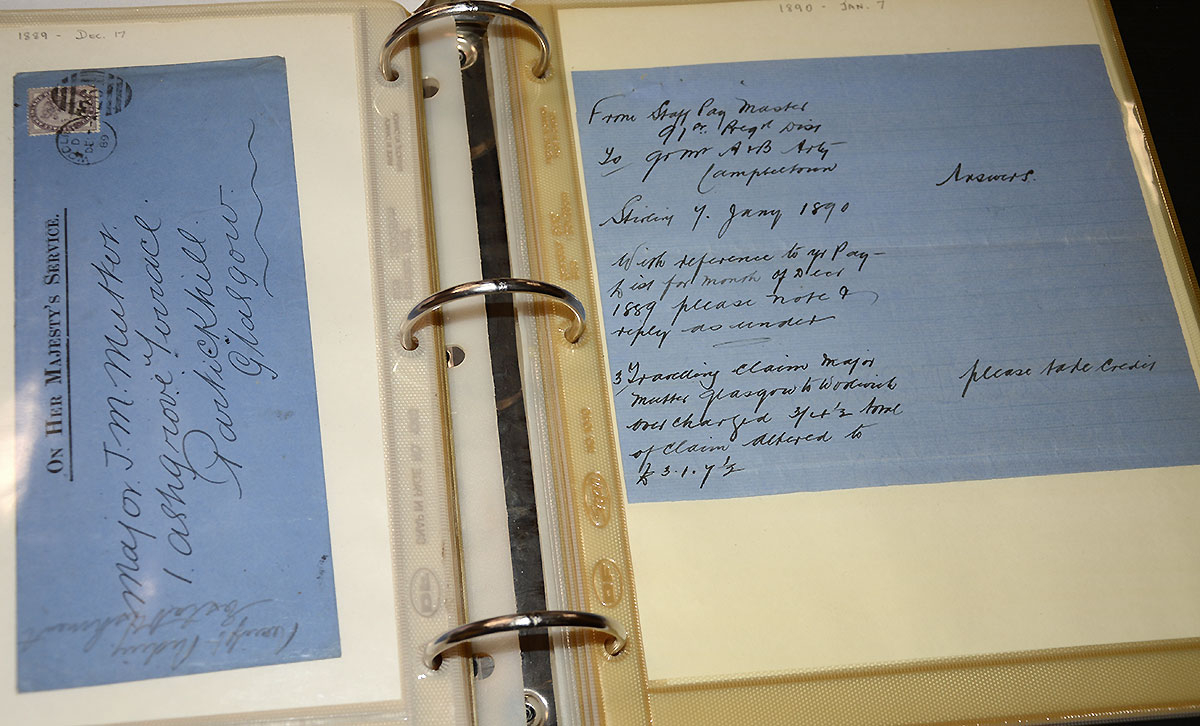 1889 - Dec. 17
On Her Majesty's Service.
Major. J. M. Mutter.
1. Ashgrove Terrace.
Partickhill
Glasgow.
1890 - Jan. 7
From Staff Pay Master
91st Regtl Dist
To Qr Mr A & B Arty
Campbeltown
Answers.
Stirling 7. Jany 1890
With reference to yr Pay-
List for month of Decr
1889 please note &
reply as under
3 Travelling Claim Major
Mutter Glasgow to Woolwich
over charged 3/ total
of claim altered to
£3.1.7½
please take credit